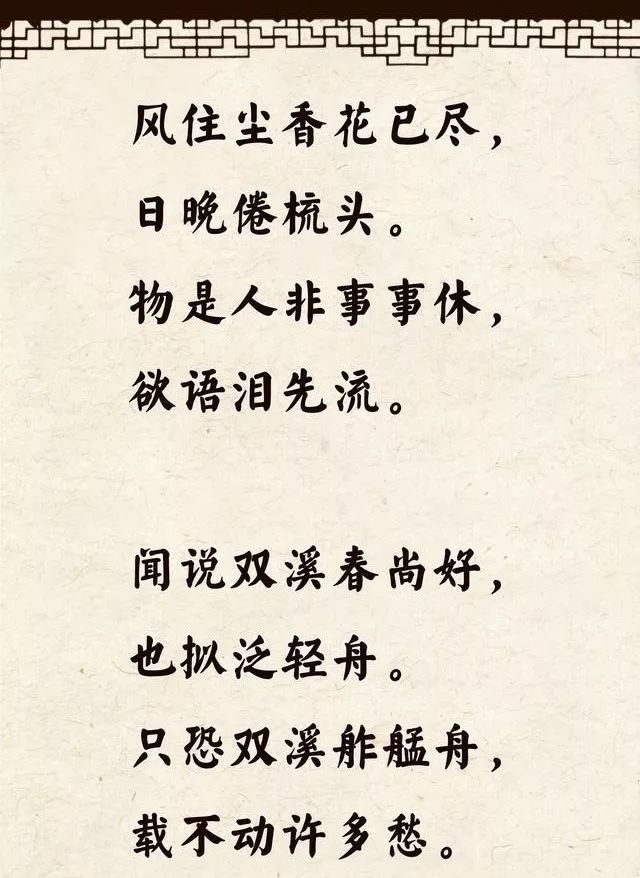 风住尘香花已尽，
日晚倦梳头。
物是人非事事休，
欲语泪先流。
闻说双溪春尚好，
也拟泛轻舟。
只恐双溪舴艋舟，
载不动许多愁。